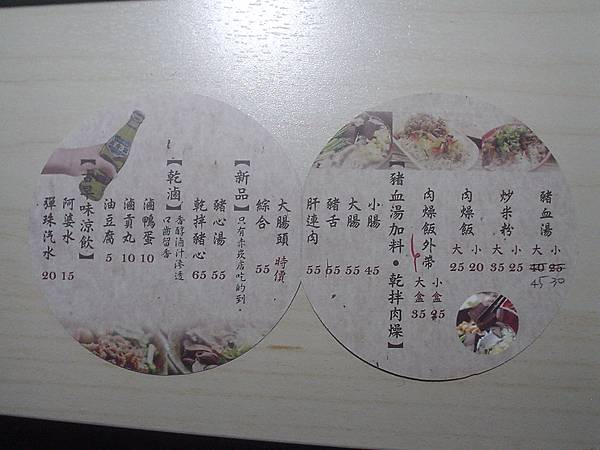 豬血湯 大40 小25
45 30
炒米粉 大35 小25
肉燥飯 大25 小20
肉燥飯外帶 大盒35 小盒25
【豬血湯加料•乾拌肉燥】
小腸 45
大腸 55
豬舌 55
肝連肉 55
大腸頭 時價
綜合 55
【新品】只有赤崁店吃的到。
豬心湯 55
乾拌豬心 65
【乾滷】香醇滷汁滲透 口齒留香
滷鴨蛋 10
滷貢丸 10
油豆腐 5
味涼飲】
阿婆水 15
彈珠汽水 20